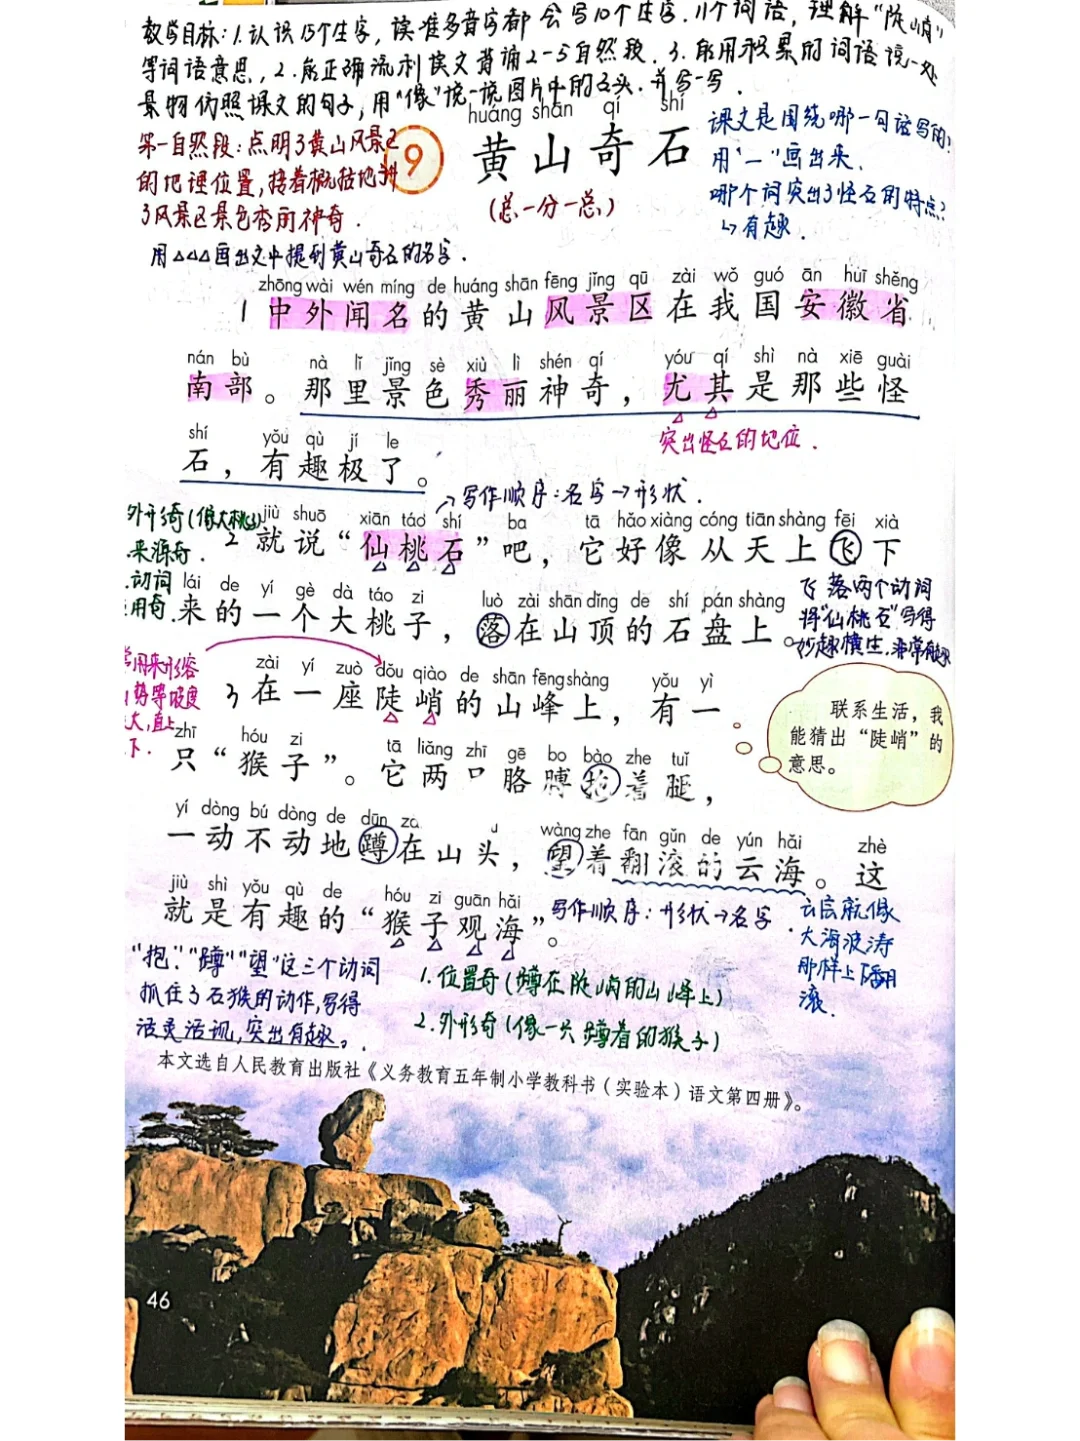 教学目标：1.认识15个生字，读准多音字都 会写10个生字.11个词语，理解“陡峭”
等词语意思，2.能正确流利读文背诵2-5自然段. 3.能用积累的词语说一处
景物仿照课文的句子，用“像”说一说图片中的石头.并写一写.
huáng shān qí shí
9 黄山奇石
(总-分-总)
第一自然段：点明了黄山风景区
的地理位置，接着概括地
了风景区景色秀丽神奇.
课文是围绕哪一句话写的？
用“一”画出来.
哪个词突出了怪石的特点？
↳有趣.
用△△△画出文中提到黄山奇石的名字.
zhōng wài wén míng de huáng shān fēng jǐng qū zài wǒ guó ān huī shěng
1 中外闻名的黄山风景区在我国安徽省
nán bù nà lǐ jǐng sè xiù lì shén qí yóu qí shì nà xiē guài
南部。那里景色秀丽神奇，尤其是那些怪
突出怪石的地位.
shí yǒu qù jí le
石，有趣极了。
→写作顺序：名字→形状.
外形奇(像大桃子)
来源奇.
动词
用奇.
jiù shuō xiān táo shí ba tā hǎo xiàng cóng tiān shàng fēi xià
2 就说“仙桃石”吧，它好像从天上飞下
lái de yí gè dà táo zi luò zài shān dǐng de shí pán shàng
来的一个大桃子，落在山顶的石盘上。
飞 落两个动词
将“仙桃石”写得
妙趣横生.非常有趣
常用来形容
山势等坡度
大，直上
下.
zài yí zuò dǒu qiào de shān fēng shàng yǒu yì
3 在一座陡峭的山峰上，有一
联系生活，我
能猜出“陡峭”的
意思。
zhī hóu zi tā liǎng zhī gē bo bào zhe tuǐ
只“猴子”。它两只胳膊抱着腿，
yí dòng bú dòng de dūn wàng zhe fān gǔn de yún hǎi zhè
一动不动地蹲在山头，望着翻滚的云海。这
jiù shì yǒu qù de hóu zi guān hǎi
就是有趣的“猴子观海”。
写作顺序：形状→名字.
云层就像
大海波涛
那样上下翻
滚.
“抱”.“蹲”“望”这三个动词
抓住了石猴的动作，写得
活灵活现，突出有趣。
1.位置奇(蹲在陡峭的山峰上)
2.外形奇(像一只蹲着的猴子)
本文选自人民教育出版社《义务教育五年制小学教科书（实验本）语文第四册》。
46